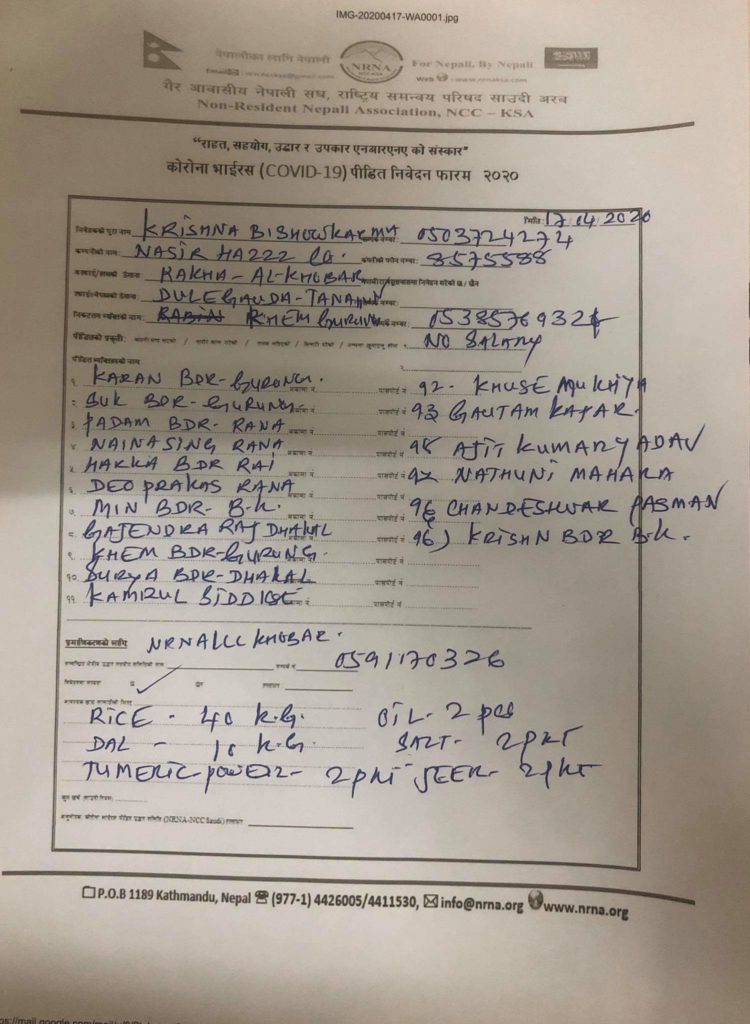 IMG-20200417-WA0001.jpg
नेपालीका लागि नेपाली
NRNA
For Nepali, By Nepali
गैर आवासीय नेपाली संघ, राष्ट्रिय समन्वय परिषद साउदी अरब
Non-Resident Nepali Association, NCC – KSA
“राहत, सहयोग, उद्धार र उपकार एनबारएनए को संस्कार”
कोरोना भाईरस (COVID-19) पीडित निवेदन फारम २०२०
मिति: 17/04/2020
निवेदकको पुरा नाम KRISHNA BISHOWKARMA 0503724274
कम्पनीको नाम: NASIR HAZZZ Co. कंपनीको फोन नम्बर: 8575588
RAKHA-AL-KHOBAR
DULEGAUDA-TANAHU
KHEM GURUNG
पीडितको प्रकृती: NO SALARY
पीडित व्यक्तिहरुको नाम
१. KARAN BDR-GURUNG. पासपोर्ट नं 92- KHUSE MUKHIYA
२. SUK BDR-GURUNG पासपोर्ट नं 93 GAUTAM KAPAR.
३. PADAM BDR-RANA पासपोर्ट नं
४. NAINASING RANA पासपोर्ट नं AJIT KUMAR YADAV
५. HAKKA BDR RAI पासपोर्ट नं NATHUNI MAHARA
६. DEO PRAKAS RANA पासपोर्ट नं
७. MIN BDR-B.K. पासपोर्ट नं CHANDESHWAR PASMAN
८. GAJENDRA RAJ DHAKAL पासपोर्ट नं KRISHN BDR B.K.
९. KHEM BDR-GURUNG. पासपोर्ट नं
१०. SURYA BDR-DHAKAL पासपोर्ट नं
११. KAMRUL SIDDIQE पासपोर्ट नं
प्रमाणिकरणको लागि NRNA KHOBAR.
0591170326
RICE - 40 K.G. OIL-2 pcs
DAL - 10 K.G. SALT- 2PKT
TUMERIC-POWER- 2PKT JEER- 2PKT
(NRNA-NCC Saudi)
P.O.B 1189 Kathmandu, Nepal (977-1) 4426005/4411530, info@nrna.org www.nrna.org